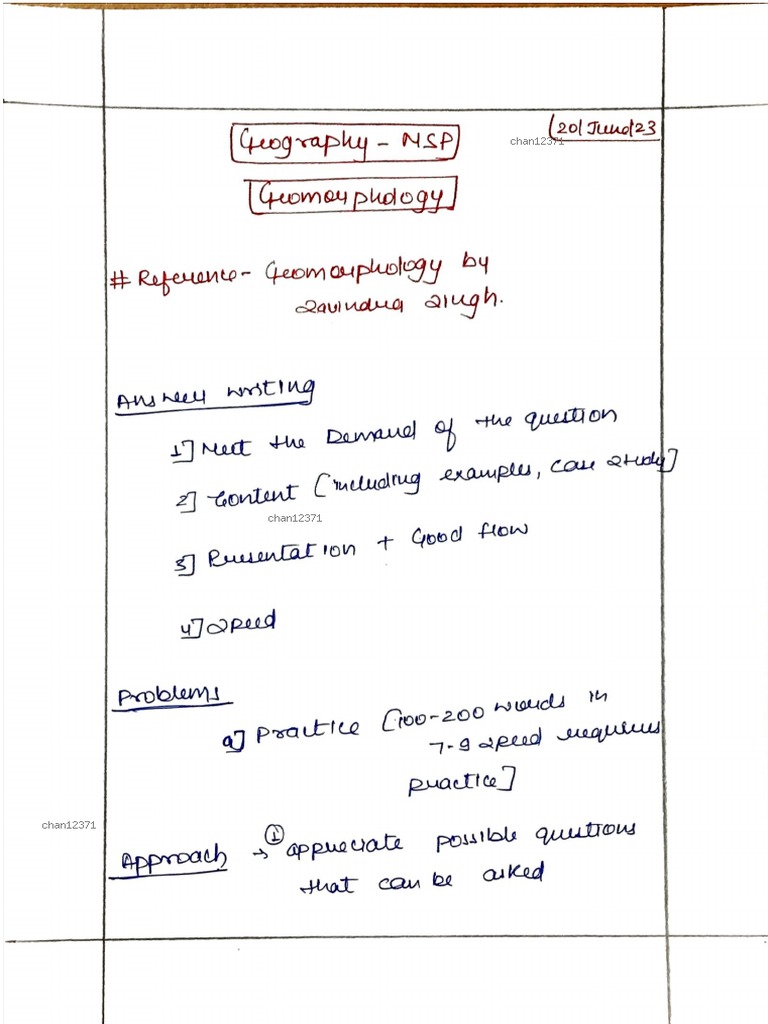 (20/June/23
chan12371
Geography - NSP
Geomorphology
# Reference - Geomorphology by
Savindra Singh.
Answer writing
1] Meet the Demand of the question
2] Content [including examples, case study]
chan12371
3] Presentation + Good flow
4] Speed
Problems
a] Practice [100-200 words in
7-9 speed requires
practice]
chan12371
Approach → ① appreciate possible questions
that can be asked